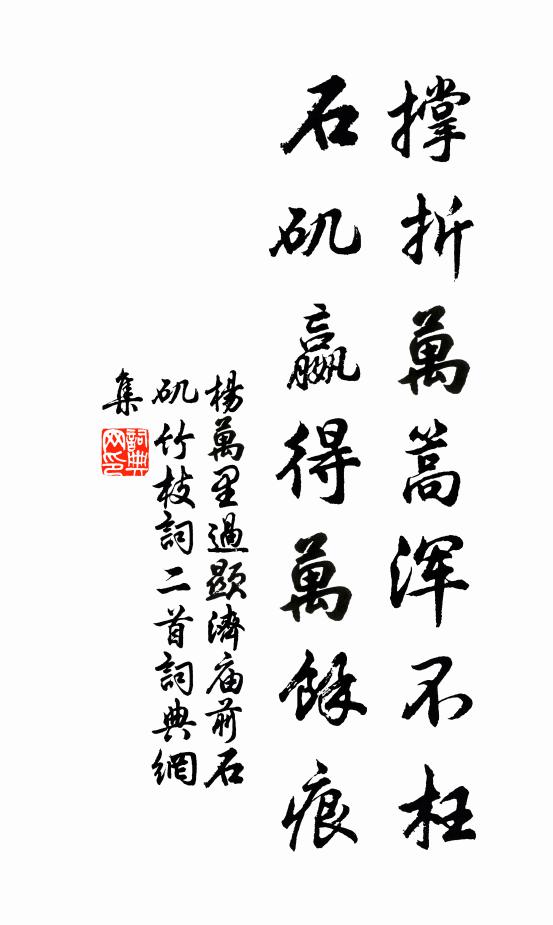 撑折萬篙渾不枉
石矶贏得萬餘痕
楊萬里過顯濟庙前石
矶竹枝詞二首詞典網
集
詞典
网印